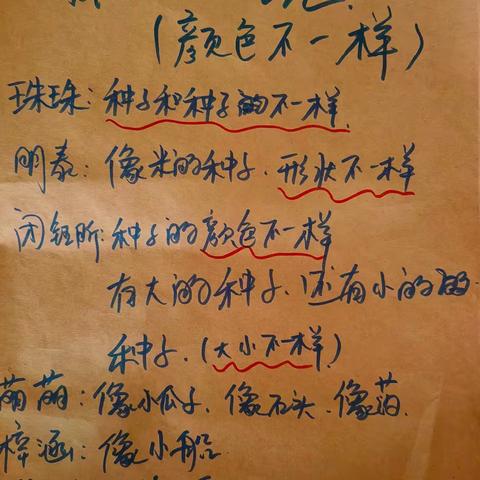 (颜色不一样)
珠珠:种子和种子的不一样
明泰:像米的种子.形状不一样
闵钰昕:种子的颜色不一样
有大的种子.还有小的的
种子.(大小不一样)
萌萌:像小瓜子.像石头.像药.
梓涵:像小船